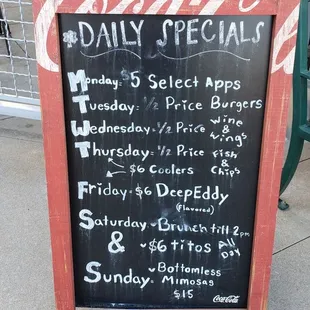 Coca-Cola
DAILY SPECIALS
Monday: $5 Select Apps
Tuesday: 1/2 Price Burgers
Wednesday: 1/2 Price Wine & Wings
Thursday: 1/2 Price Fish & Chips
$6 Coolers
Friday: $6 DeepEddy
(Flavored)
Saturday Brunch till 2pm
& $6 titos All Day
Sunday Bottomless Mimosas
$15
Coca-Cola